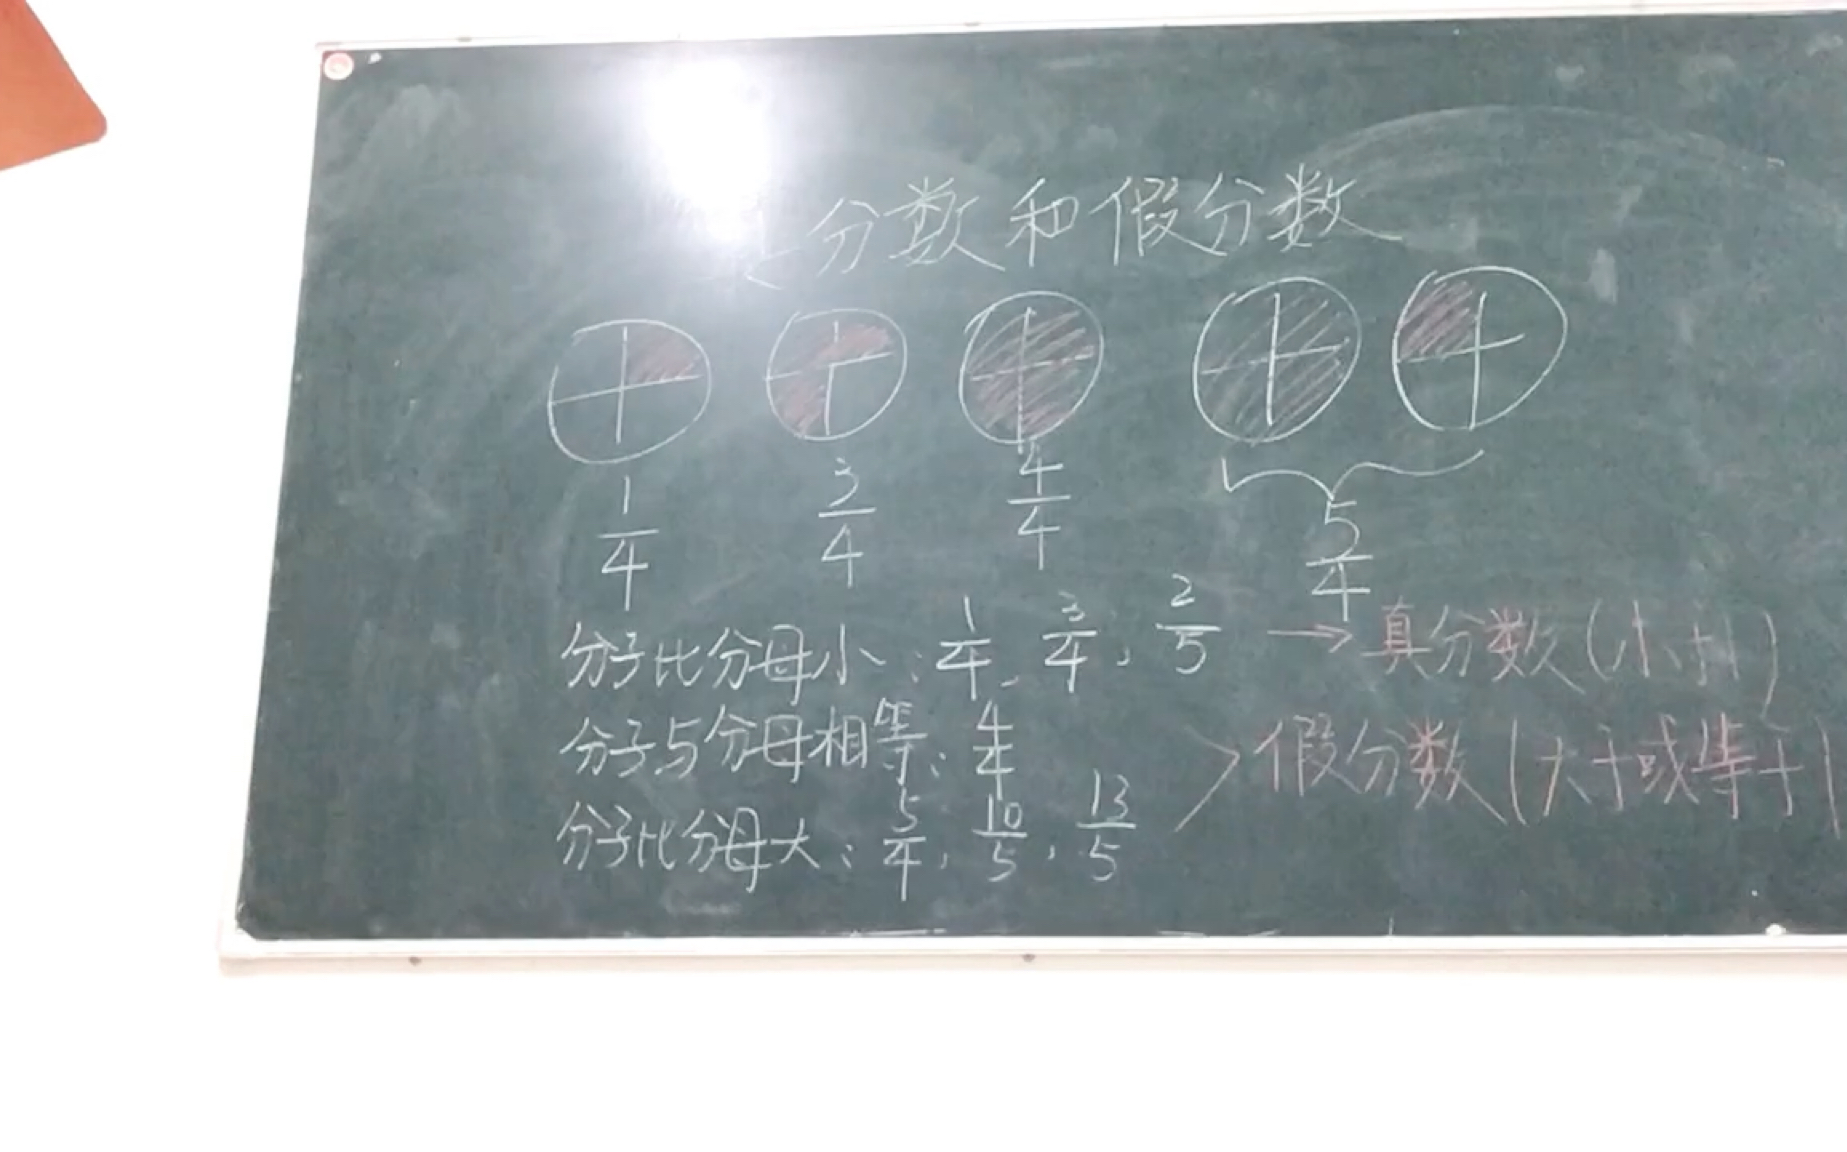 分数和假分数
1/4 3/4 4/4 5/4
分子比分母小：1/4、3/4，2/5 → 真分数(小于1)
分子与分母相等：4/4
假分数(大于或等于1
分子比分母大：5/4，10/5，13/5